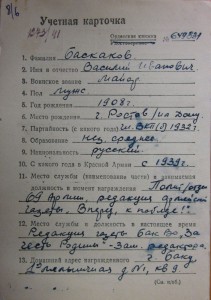 Учетная карточка
1. Фамилия Баскаков
2. Имя и отчество Василий Иванович
3. Воинское звание Майор
4. Пол мужс
5. Год рождения 1908 г.
6. Место рождения г. Ростов н/Дону
7. Партийность (с какого года)
8. Образование н/среднее
9. Национальность русский
10. С какого года в Красной Армии с 1939 г.
11. Место службы (наименование части) и занимаемая
должность в момент награждения
69 Армии, редакция армейской
газеты "Вперед к победе!"
12. Место службы и должность в настоящее время
Редакция газеты БакВО, "За
честь Родины" - зам. редактора
13. Домашний адрес награжденного г. Баку
д №1, кв 9
(См. н/об.)